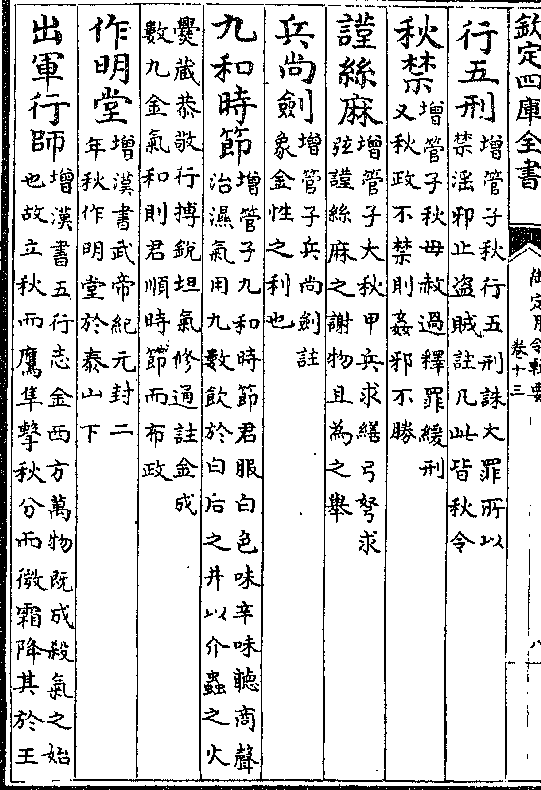 欽定四庫全書
御定月令輯要 卷十三
八
行五刑 增管子秋行五刑誅大罪所以
禁淫邪止盜賊註凡此皆秋令
秋禁 增管子秋毋赦過釋罪緩刑
又秋政不禁則姦邪不勝
謹絲麻 增管子大秋甲兵求繕弓弩求
弦謹絲麻之謝物且為之舉
兵尚劍 增管子兵尚劍註
象金性之利也
九和時節 增管子九和時節君服白色味辛味聽商聲
治濕氣用九數飲於白后之井以介蟲之火
爨藏恭敬行搏銳坦氣修通註金成
數九金氣和則君順時節而布政
作明堂 增漢書武帝紀元封二
年秋作明堂於泰山下
出軍行師 增漢書五行志金西方萬物既成殺氣之始
也故立秋而鷹隼擊秋分而微霜降其於王